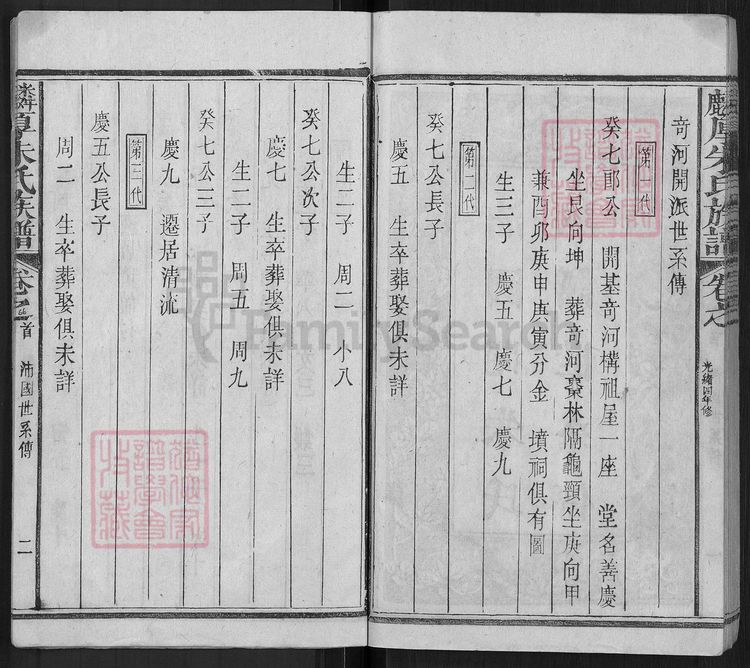 麟厚朱氏族譜 卷之
光緒四年修
奇河開派世系傳
第一代
癸七郎公 開基奇河構祖屋一座 堂名善慶
坐艮向坤 葬奇河棗林隔龜頸坐庚向甲
兼酉卯庚申庚寅分金 墳祠俱有圖
生三子 慶五 慶七 慶九
第二代
癸七公長子
慶五 生卒葬娶俱未詳
生二子 周二 小八
癸七公次子
慶七 生卒葬娶俱未詳
生二子 周五 周九
癸七公三子
慶九 遷居清流
第三代
慶五公長子
周二 生卒葬娶俱未詳
麟厚朱氏族譜 卷之首 沛國世系傳 二
FamilySearch